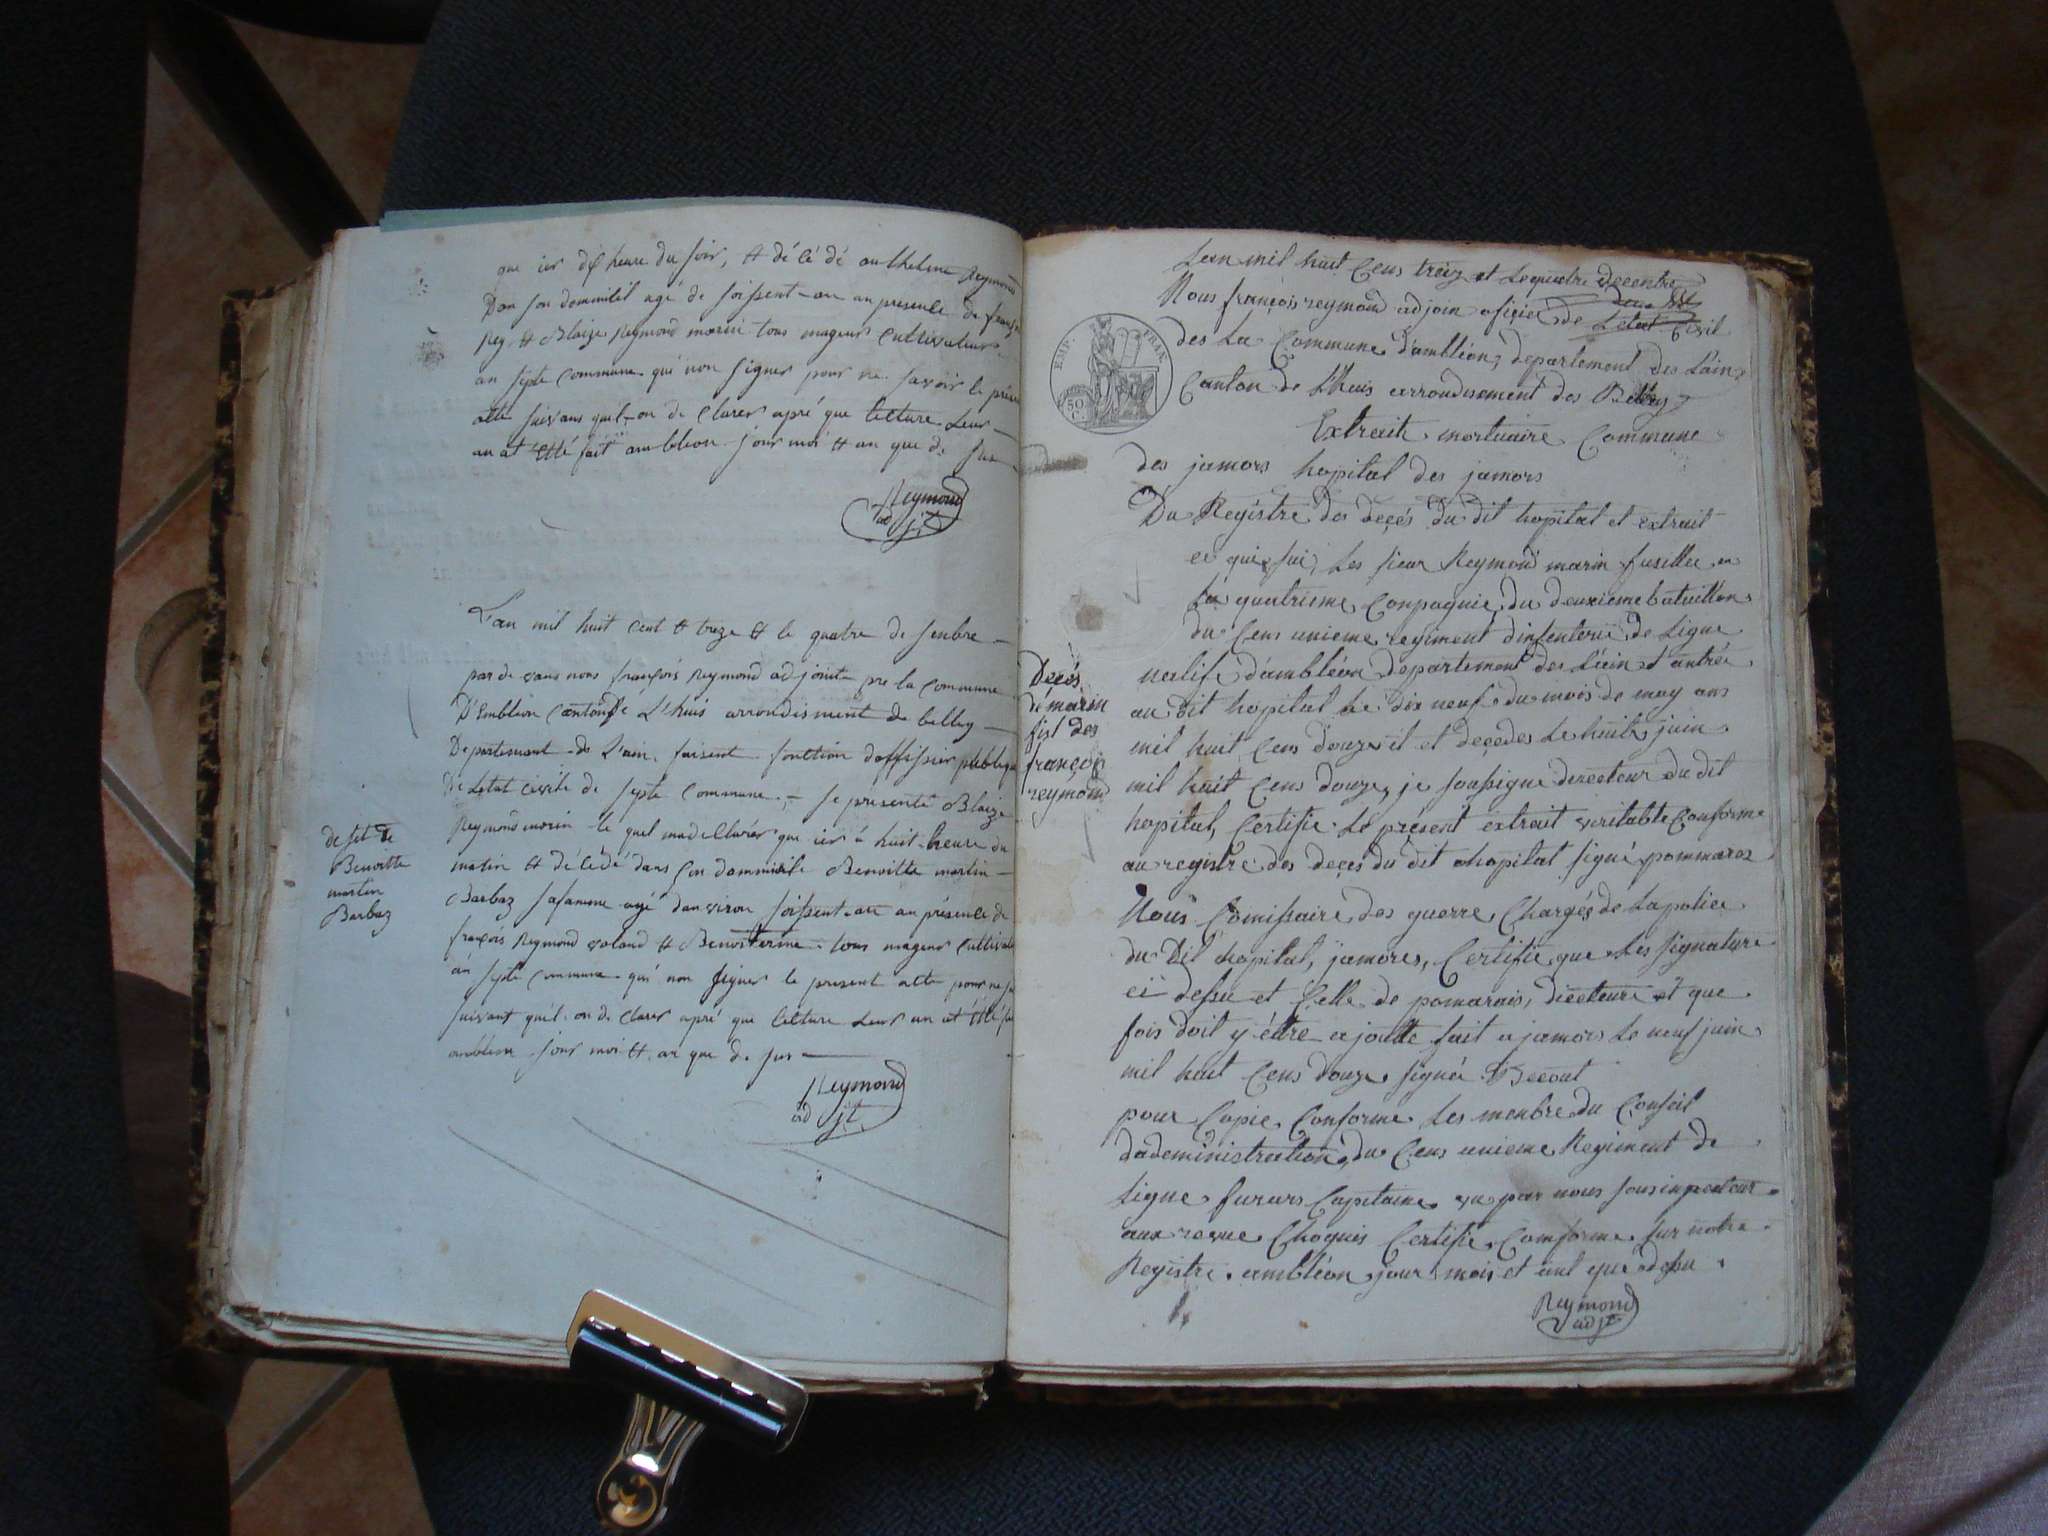 que ier dix heure du soir, et dé cé dé anthelme Reymond
Dan son dommicil agé de soissent an an presence de françois
Rey et Blaize Reymond morin tous mageur Cultivateur
an septe commune qui non signer pour ne savoir le présen
atte suivans quil on de clarer apré que lecture Leur
an at étté fait ambléon jour moi et an que de sus
Reymond
adjt
L'an mil huit cent et treze et le quatre de senbre
par de vans nous françois Reymond adjoint pre la commune
D'Embléon Canton de L'huis arrondisment de belley
Departement de L'ain, faisent fonction d'offissier publique
De Letat civile de septe commune, se présenté Blaize
Reymond morin le quel ma de Clarér que ier à huit heure du
matin et dé cé dé dans son dommicile Benoitte martin
Barbaz sa famme agé danviron soissent an an présence de
françois Reymond voland et Benoit ferme tous mageur Cultivate
an septe commune qui non signer le present atte pour ne sa
suivant quil on de clarer apré que lecture Leur an at étté fai
ambléon jour moi et an que de sus
Reymond
adjt
de set de
Benoitte
martin
Barbaz
Lan mil huit Cens treiz et Lequatre Decentre
Nous françois reymond adjoin oficier de Letat Civil
des La Commune d'ambléon, departement des Lain
Canton de Lhuis arrondisement des Belley
EMP. FRAN.
50 C.
Extrait mortuaire Commune
des jamors hopital des jamors
Du Registre des deçés du dit hopital et extrait
ce qui sui, Les sieur Reymond marin fusillie en
La quatrieme Conpagnie du deuxieme bataillon
du Cens unieme regiment d'infenterie de Ligne
natif d'ambléon departement des L'ain et antrée
au dit hopital Le dix neuf du mois de may ans
mil huit Cens douze il et deçedes Le huit juin
mil huit Cens douze, je soussigne derecteur du dit
hopital, Certifie Le présent extrait veritable Conforme
au registre des deçés du dit ahopital signé pommares
Nous Comissaire des guerre Chargés de La police
du Dit hopital, jamores, Certifie que Les signature
ci dessu et Celle de pomarais, directeure et que
fois doit y éttre ajoutte fait a jamors Le neuf juin
mil huit Cens douze signé
pour Copie Conforme Les menbre du Conseil
dadeministration du Cens unieme Regiment de
Ligne Capitaine vu par nous sousinpecteur
aux revue Choquis Certifie Comforme sur notre
Registre ambléon jour mois et ant que desu
Reymond
adjt
Deçés
de marin
fist des
françois
reymond